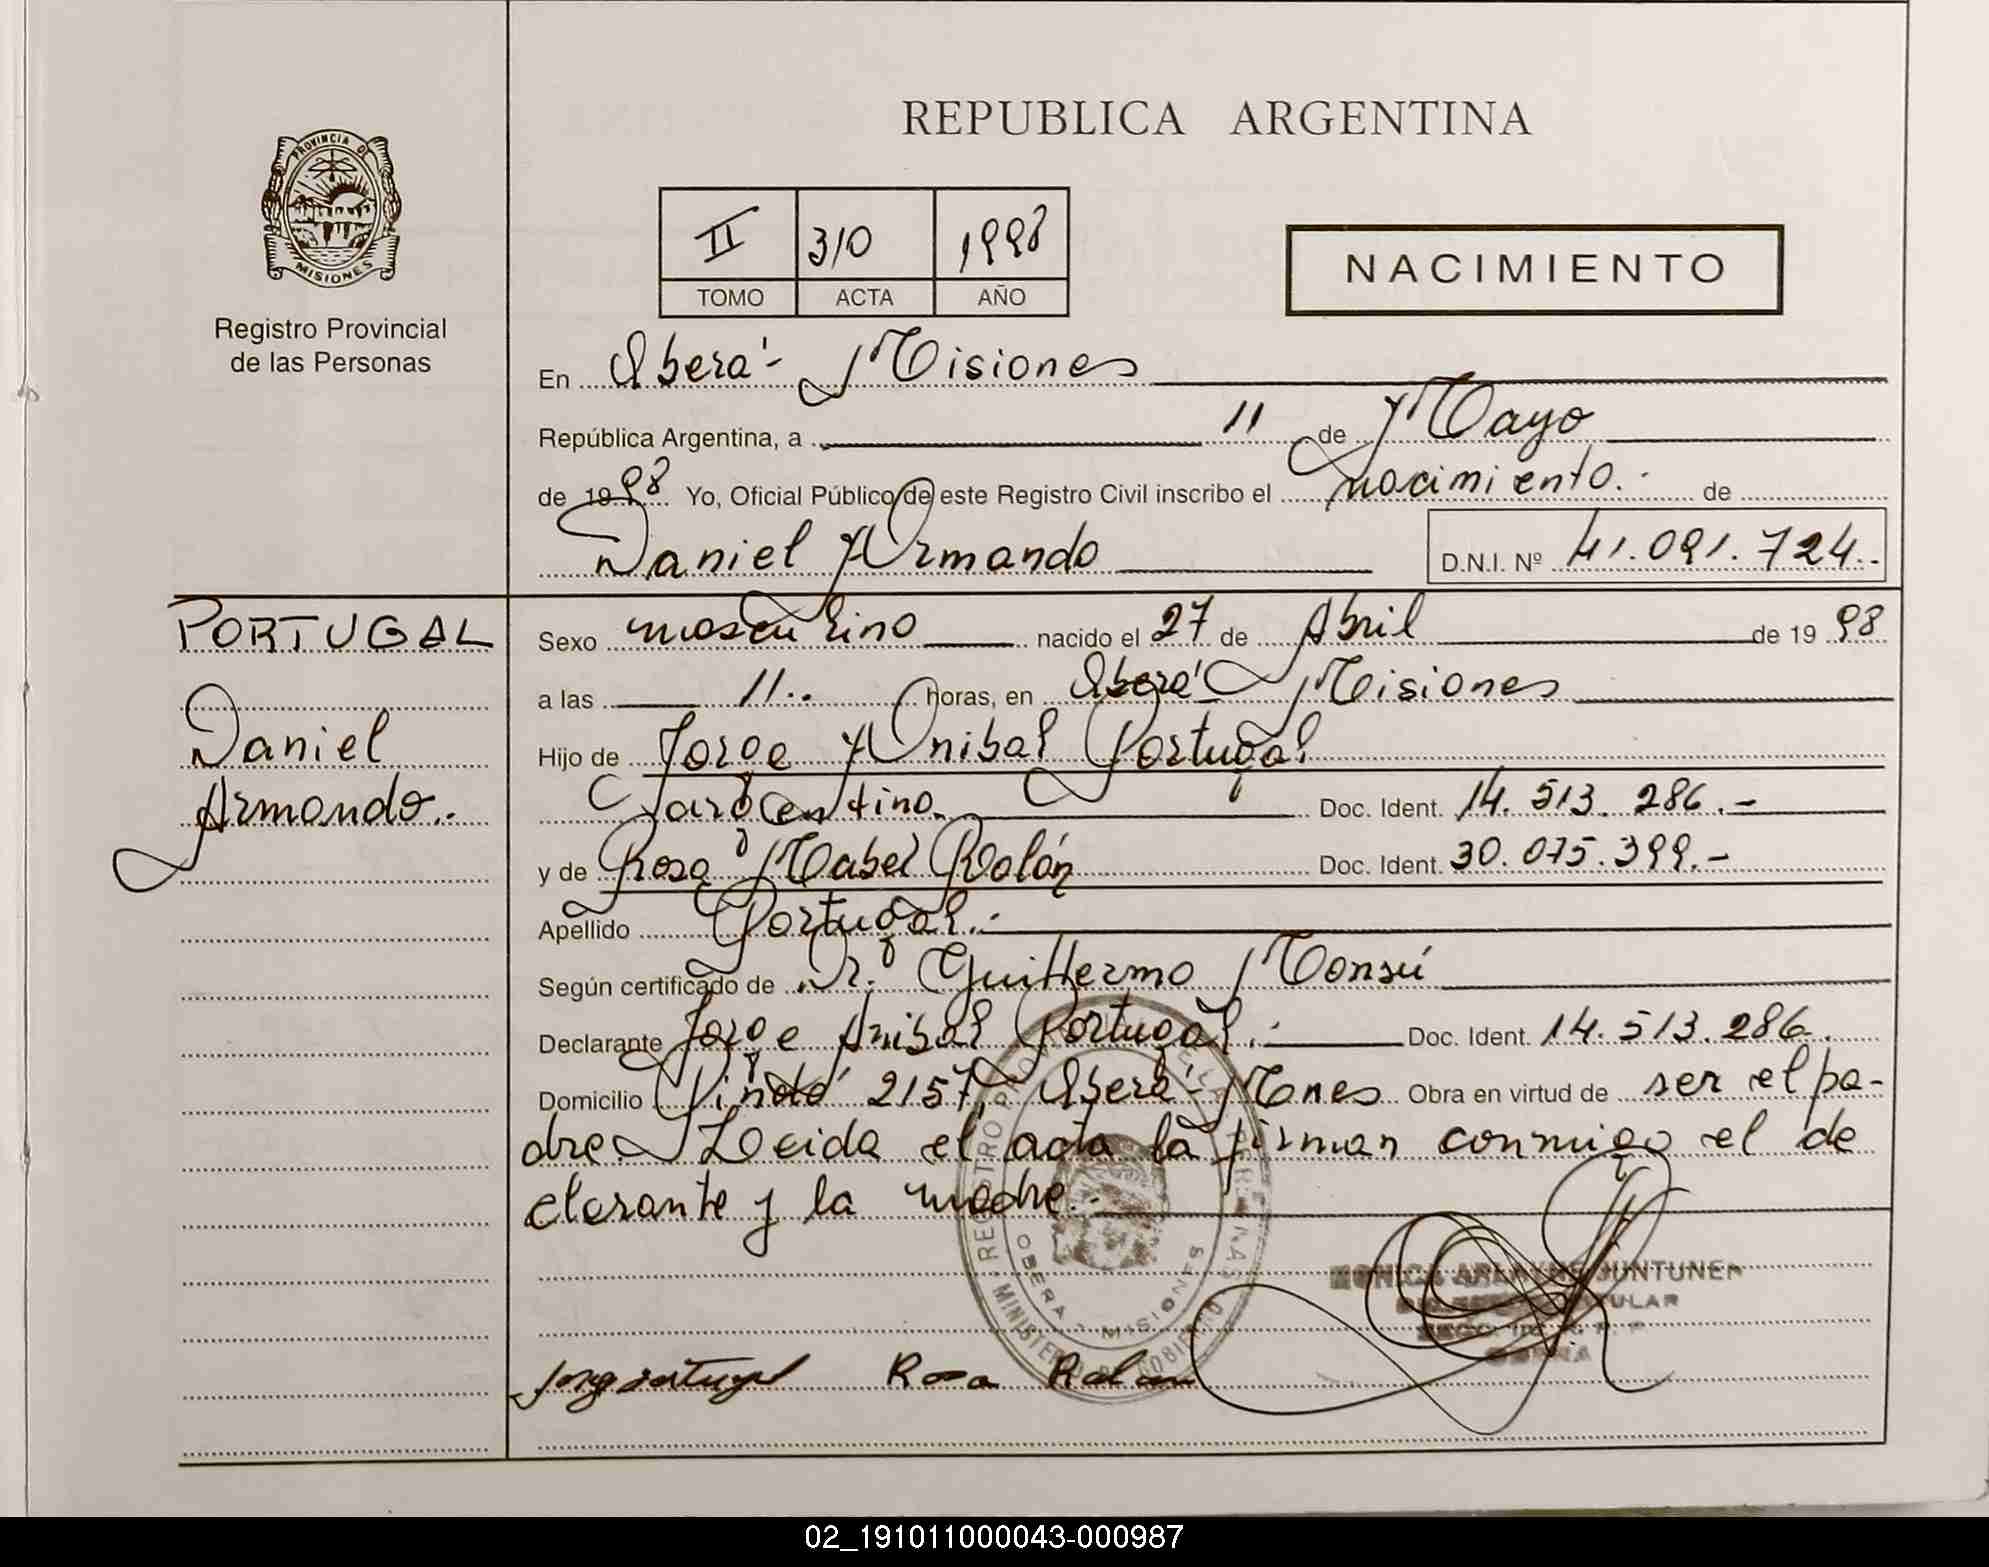 PROVINCIA DE
MISIONES
Registro Provincial
de las Personas
REPUBLICA ARGENTINA
II 310 1998
TOMO ACTA AÑO
NACIMIENTO
En Oberá - Misiones
República Argentina, a 11 de Mayo
de 1998 Yo, Oficial Público de este Registro Civil inscribo el nacimiento.- de
Daniel Armando D.N.I. Nº 41.091.724.-
PORTUGAL
Daniel
Armando.-
Sexo masculino nacido el 27 de Abril de 19 98
a las 11.. horas, en Oberá Misiones
Hijo de Jorge Anibal Portugal
argentino. Doc. Ident. 14.513.286.-
y de Rosa Mabel Rolón Doc. Ident. 30.075.399.-
Apellido Portugal.-
Según certificado de Dr. Guillermo Monsú
Declarante Jorge Anibal Portugal.- Doc. Ident. 14.513.286.
Domicilio Pindó 2157, Oberá - Mnes Obra en virtud de ser el pa-
dre. Leida el acta la firman conmigo el de
clarante y la madre.-
REGISTRO PROVINCIAL DE LAS PERSONAS
MINISTERIO DE GOBIERNO
OBERA - MISIONES
MONICA JUNTUNEN
TITULAR
Rosa Rolon
02_191011000043-000987